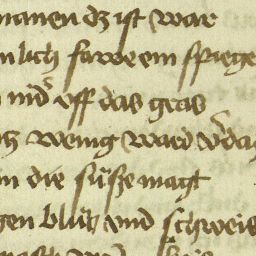 manen dz ist war
nlich farwe ein spiege
nider vff das gras
tz wenig ward v'da
in die süsze magt
gen blůt vnd schweis